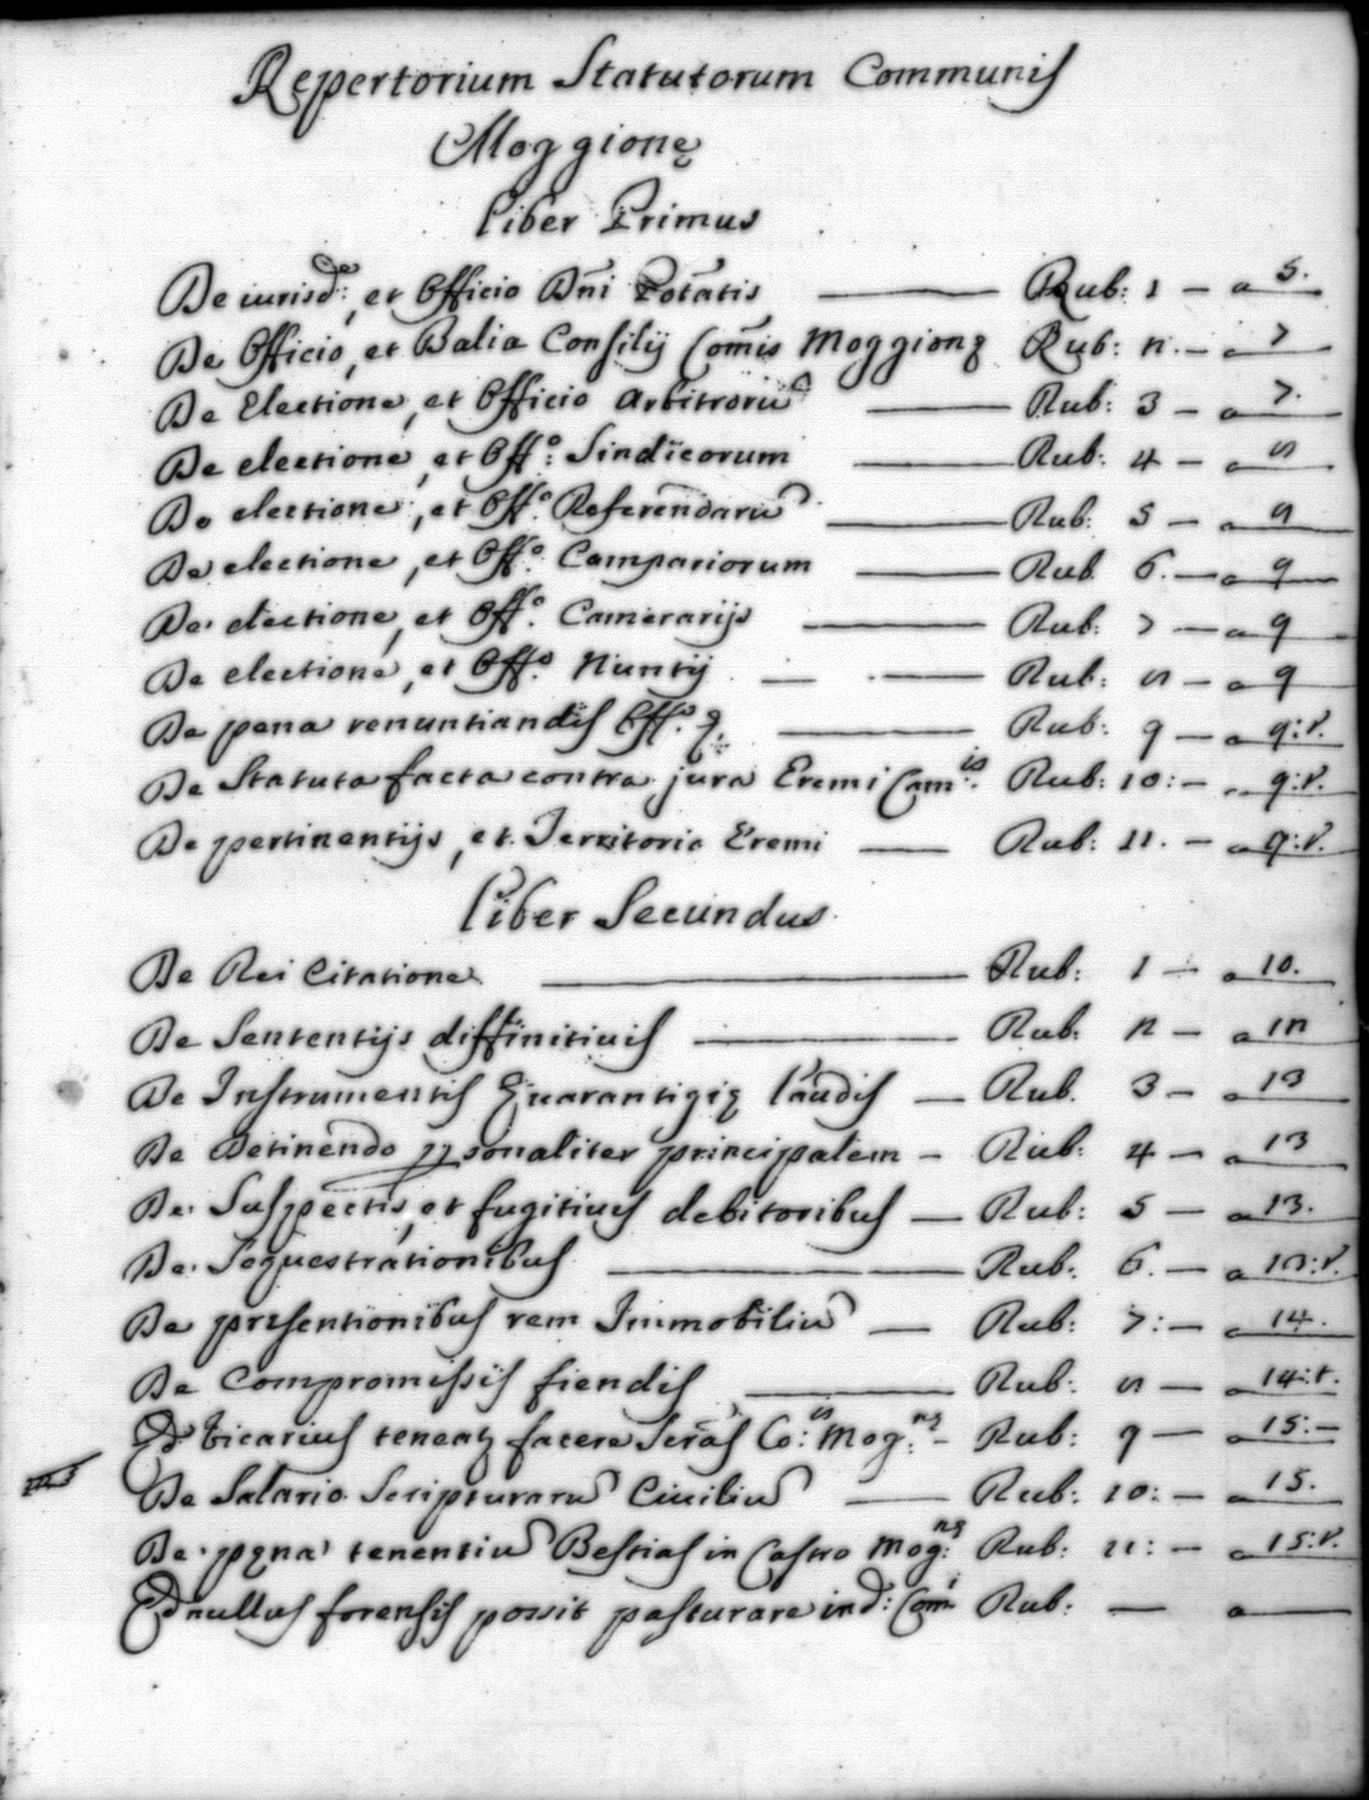 Repertorium Statutorum Communis
Moggionę
Liber Primus
De iurisd:ne, et Officio Dñi Potãtis — Rub: 1 — a 5.
De Officio, et Balia Consilij Com̃is Moggionę Rub: 2. — a 7
De Electione, et Officio Arbitrorũ — Rub: 3 — a 7.
De electione, et Off:o Sindicorum — Rub: 4 — a 8
De electione, et Off.o Referendarũ — Rub: 5 — a 9
De electione, et Off.o Campariorum — Rub 6. — a 9
De electione, et Off.o Camerarijs — Rub: 7 — a 9
De electione, et Off.o Nuntij — Rub: 8 — a 9
De pena renuntiandis Off.s — Rub: 9 — a 9:v.
De Statuta facta contra jura Eremi Cam:is Rub: 10: — 9:v.
De pertinentijs, et Territorio Eremi — Rub: 11. — a 9:v.
Liber Secundus
De Rei Citatione — Rub: 1 — a 10.
De Sententijs diffinitiuis — Rub: 2 — a 12
De Instrumentis Guarantigię Laudis — Rub. 3 — a 13
De Detinendo personaliter principalem — Rub: 4 — a 13
De Suspectis, et fugitiuis debitoribus — Rub: 5 — a 13.
De Sequestrationibus — Rub: 6. — a 13:v.
De presentionibus rem Immobiliũ — Rub: 7: — a 14.
De Compromissis fiendis — Rub: 8 — a 14:t.
Qd Vicarius teneatʒ facere Scr̃as Co:is Mog:nę — Rub: 9 — a 15: —
De Salario Scripturarũ Ciuiliũ — Rub: 10: — a 15.
De pęna tenentiũ Bestias in Castro Mog:nę Rub: 11: — a 15:v.
Qd nullus forensis possit pasturare in d: Com:i Rub: — a —